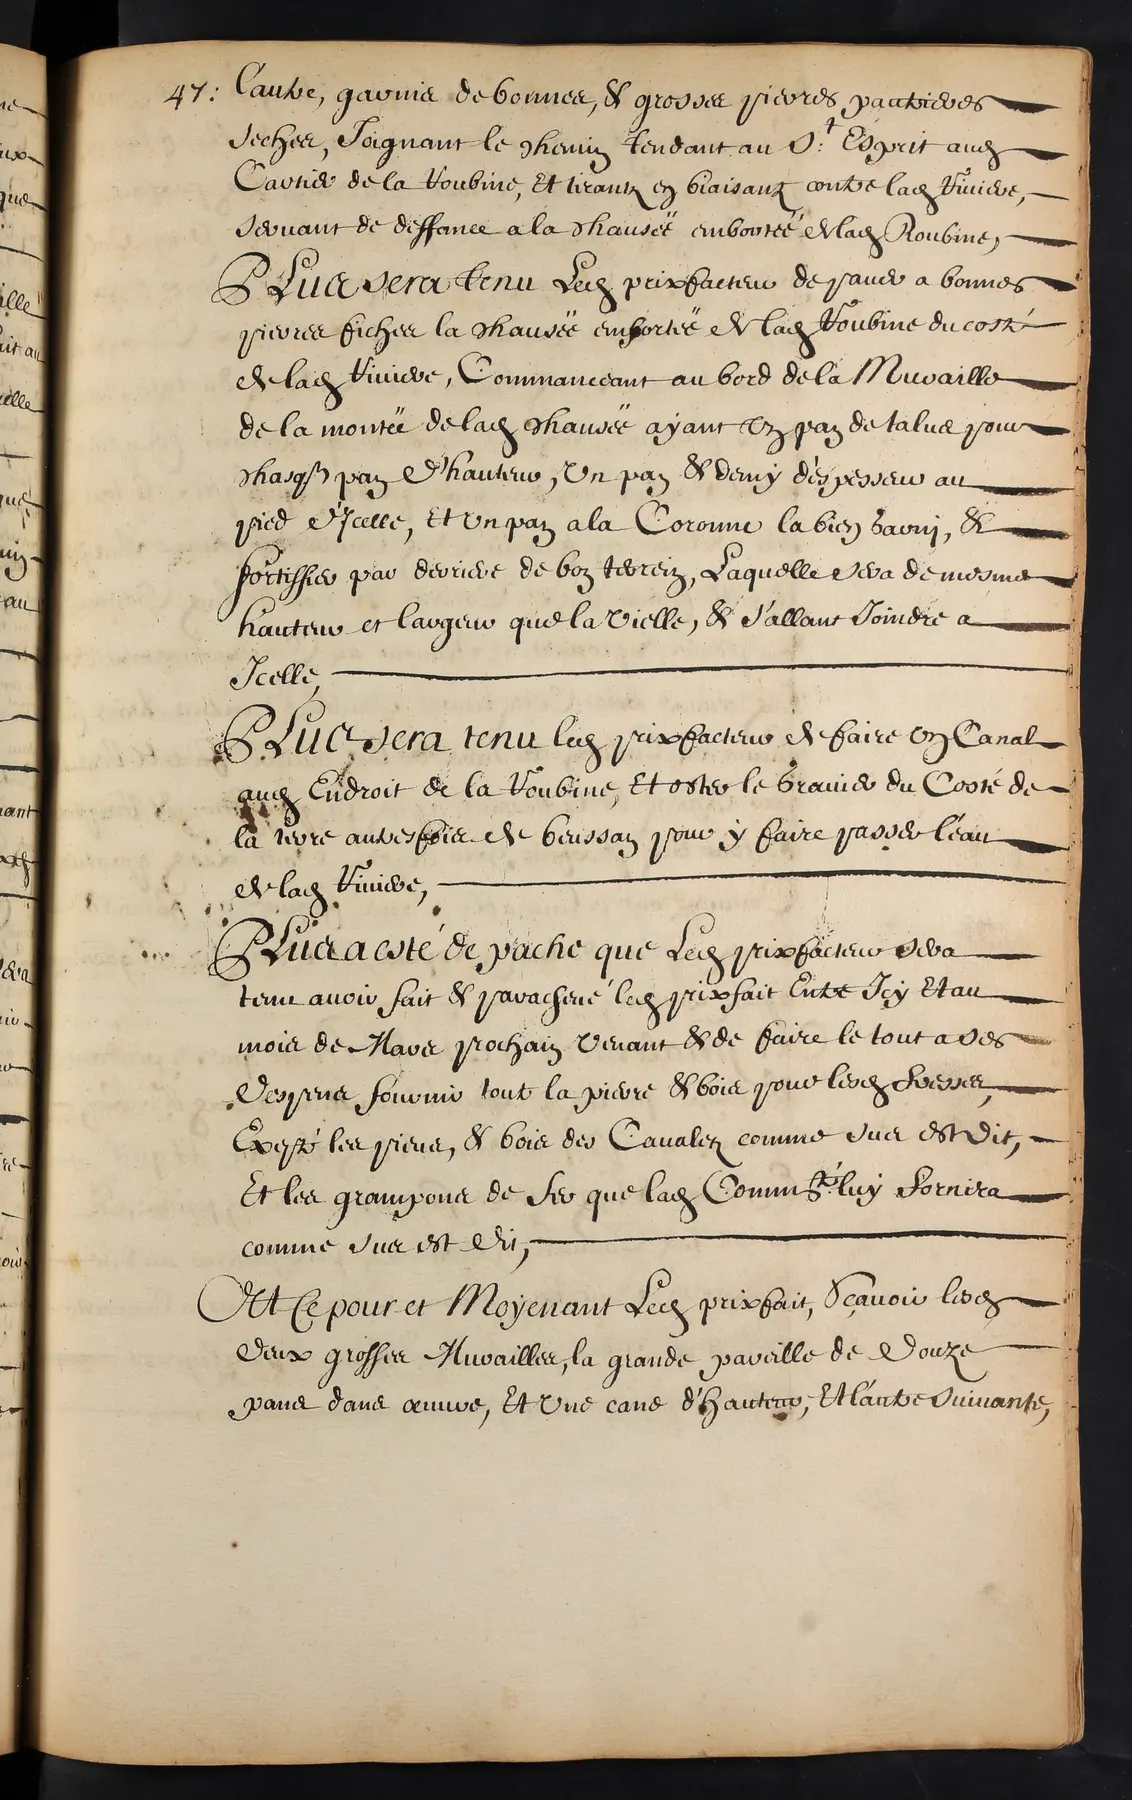 47: L'autre, garnie de bonnes, & grosses pierres pautieres
seches, Joignant le chemin tendant au S.t Esprit aud
Cartier de la Roubine, Et tirant en biaisant contre lad Riviere,
servant de deffance a la chauseë emporteë de lad Roubine,
Plus sera tenu Led prixfacteur de paver a bonnes
pierres fiches la chauseë emporteë de lad Roubine du costé
de lad Riviere, Commanceant au bord de la Muraille
de la monteë de lad chauseë ayant un pan de talus pour
chasq pan d'hauteur, Un pan & demy d'espesseur au
pied d'Icelle, Et Un pan a la Coronne la bien garnj, &
fortiffier par derriere de bon terrein, Laquelle sera de mesme
hauteur et largeur que la vielle, & s'allant Joindre a
Icelle,
Plus sera tenu led prixfacteur de faire un Canal
aud Endroit de la Roubine, Et oster le Gravier du Costé de
la terre autresfois de beusson pour y faire passer l'eau
de lad Riviere,
Plus a esté de pache que Led prixfacteur sera
tenu avoir fait & parachevé led prixfait Entre Icy Et au
mois de Mars prochain venant & de faire le tout a ses
despens fournir tout la pierre & bois pour lesd
Excepté les pieus, & bois des Cavalez comme sus est dit,
Et les grampons de fer que lad Commté luy fornira
comme sus est dit,
Et Ce pour et Moyenant Led prixfait, Sçavoir lesd
deux grosses Murailles, la grande pareille de douze
pans dans œuvre, Et Une cane d'hauteur, Et l'autre suivante,